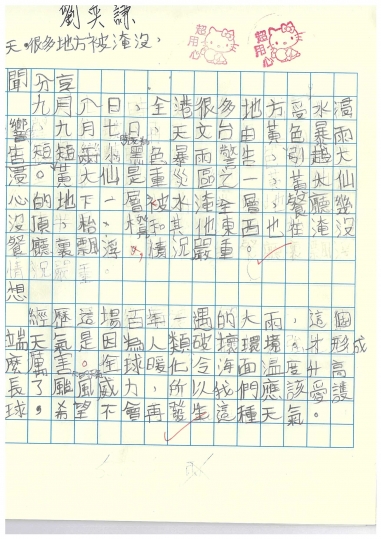 劉奕謙
超用心
超用心
天。很多地方被淹沒,
聞分享
九月八日,全港很多地方受水浸
響。九月七日,天文台由黃色暴雨
告短短 黑色暴雨警告,引起大
浸。黃大仙是重災區之一,黃大仙
心的地下一層被水淹全層,餐廳幾
沒頂,枱、櫈和其他東西也在淹沒
餐廳裏飄浮,情況嚴重。
情況嚴重。
想
經歷這場百年一遇的大雨,這個
端天氣是因為人類破壞環境,才形成
麼厲害。全球暖化令海面溫度升高
長了颱風威力,所以我們應該愛護
球。希望不會再發生這種天氣。